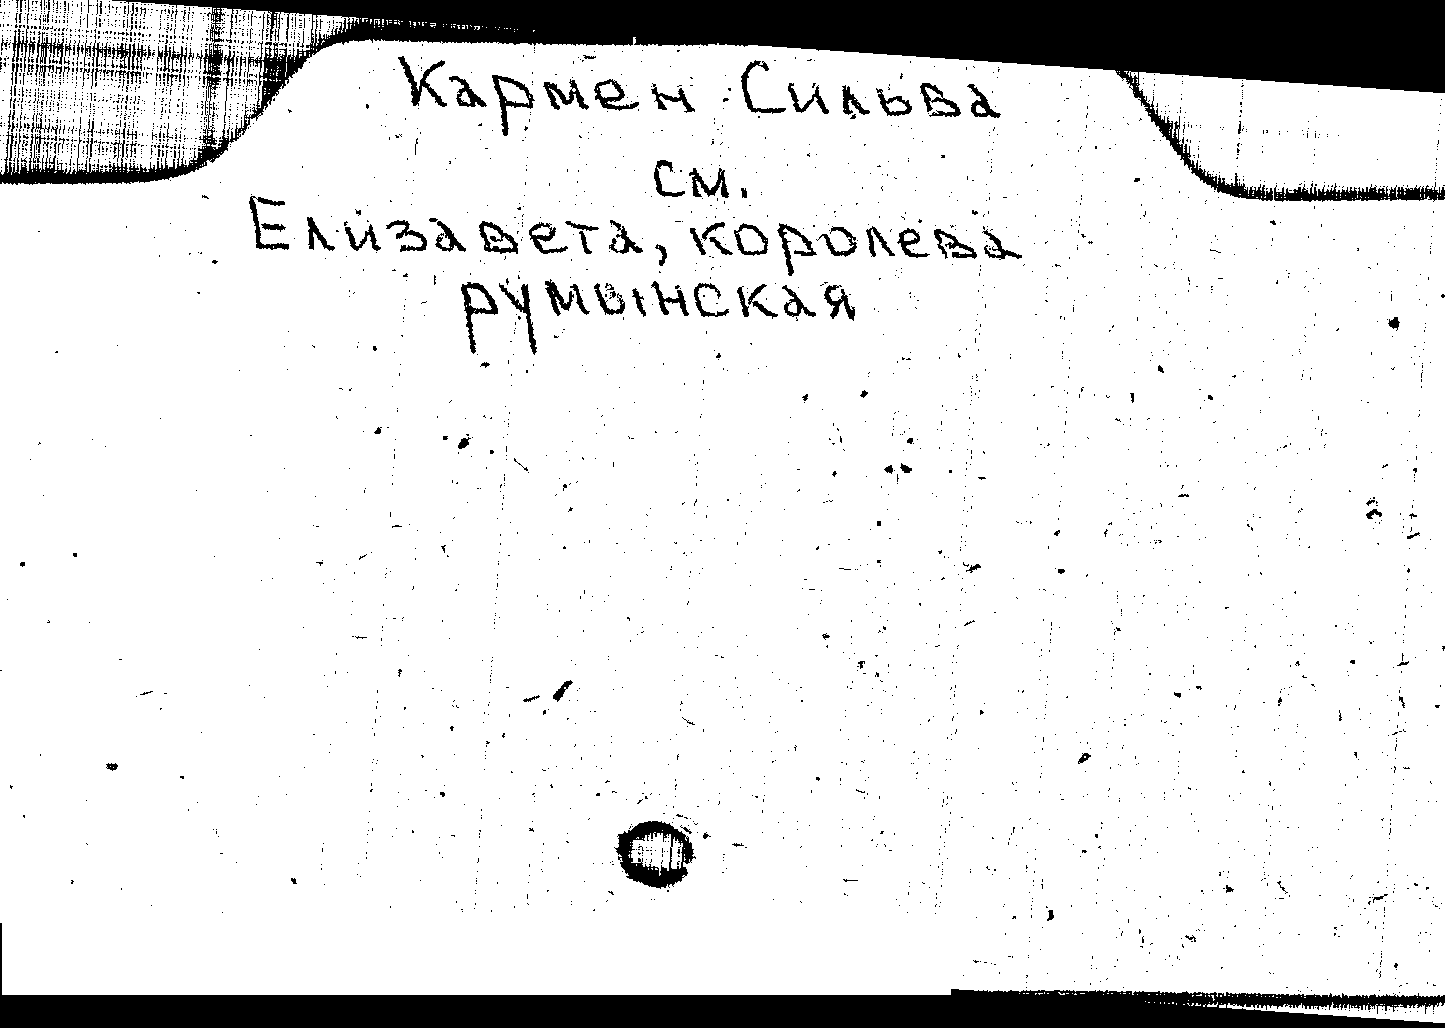 Кармен Сильва
см.
Елизавета, королева
румынская